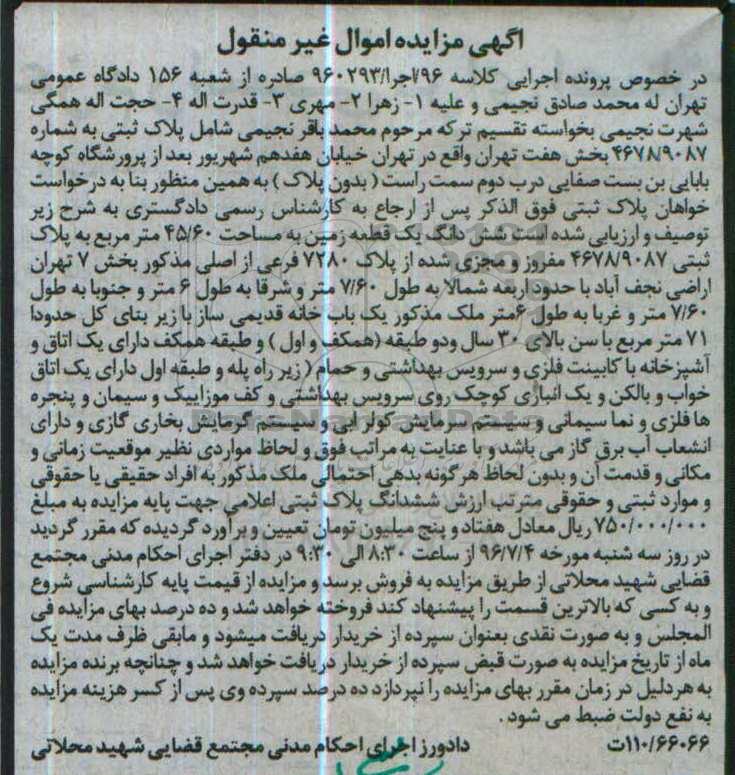 آگهی مزایده اموال غیر منقول
در خصوص پرونده اجرایی کلاسه ۹۶/اجرا/۹۶۰۲۹۳ صادره از شعبه ۱۵۶ دادگاه عمومی
تهران له محمد صادق نجیمی و علیه ۱- زهرا ۲- مهری ۳- قدرت اله ۴- حجت اله همگی
شهرت نجیمی بخواسته تقسیم ترکه مرحوم محمد باقر نجیمی شامل پلاک ثبتی به شماره
۴۶۷۸/۹۰۸۷ بخش هفت تهران واقع در تهران خیابان هفدهم شهریور بعد از پرورشگاه کوچه
بابایی بن بست صفایی درب دوم سمت راست ( بدون پلاک ) به همین منظور بنا به درخواست
خواهان پلاک ثبتی فوق الذکر پس از ارجاع به کارشناس رسمی دادگستری به شرح زیر
توصیف و ارزیابی شده است شش دانگ یک قطعه زمین به مساحت ۴۵/۶۰ متر مربع به پلاک
ثبتی ۴۶۷۸/۹۰۸۷ مفروز و مجزی شده از پلاک ۷۲۸۰ فرعی از اصلی مذکور بخش ۷ تهران
اراضی نجف آباد با حدود اربعه شمالا به طول ۷/۶۰ متر و شرقا به طول ۶ متر و جنوبا به طول
۷/۶۰ متر و غربا به طول ۶متر ملک مذکور یک باب خانه قدیمی ساز با زیر بنای کل حدودا
۷۱ متر مربع با سن بالای ۳۰ سال ودو طبقه (همکف و اول ) و طبقه همکف دارای یک اتاق و
آشپزخانه با کابینت فلزی و سرویس بهداشتی و حمام ( زیر راه پله و طبقه اول دارای یک اتاق
خواب و بالکن و یک انباری کوچک روی سرویس بهداشتی و کف موزاییک و سیمان و پنجره
ها فلزی و نما سیمانی و سیستم سرمایش کولر ابی و سیستم گرمایش بخاری گازی و دارای
انشعاب آب برق گاز می باشد و با عنایت به مراتب فوق و لحاظ مواردی نظیر موقعیت زمانی و
مکانی و قدمت آن و بدون لحاظ هر گونه بدهی احتمالی ملک مذکور به افراد حقیقی یا حقوقی
و موارد ثبتی و حقوقی مترتب ارزش ششدانگ پلاک ثبتی اعلامی جهت پایه مزایده به مبلغ
۷۵۰/۰۰۰/۰۰۰ ریال معادل هفتاد و پنج میلیون تومان تعیین و برآورد گردیده که مقرر گردید
در روز سه شنبه مورخه ۹۶/۷/۴ از ساعت ۸:۳۰ الی ۹:۳۰ در دفتر اجرای احکام مدنی مجتمع
قضایی شهید محلاتی از طریق مزایده به فروش برسد و مزایده از قیمت پایه کارشناسی شروع
و به کسی که بالاترین قسمت را پیشنهاد کند فروخته خواهد شد و ده درصد بهای مزایده فی
المجلس و به صورت نقدی بعنوان سپرده از خریدار دریافت میشود و مابقی ظرف مدت یک
ماه از تاریخ مزایده به صورت قبض سپرده از خریدار دریافت خواهد شد و چنانچه برنده مزایده
به هر دلیل در زمان مقرر بهای مزایده را نپردازد ده درصد سپرده وی پس از کسر هزینه مزایده
به نفع دولت ضبط می شود .
۱۱۰/۶۶۰۶۶ت دادورز اجرای احکام مدنی مجتمع قضایی شهید محلاتی